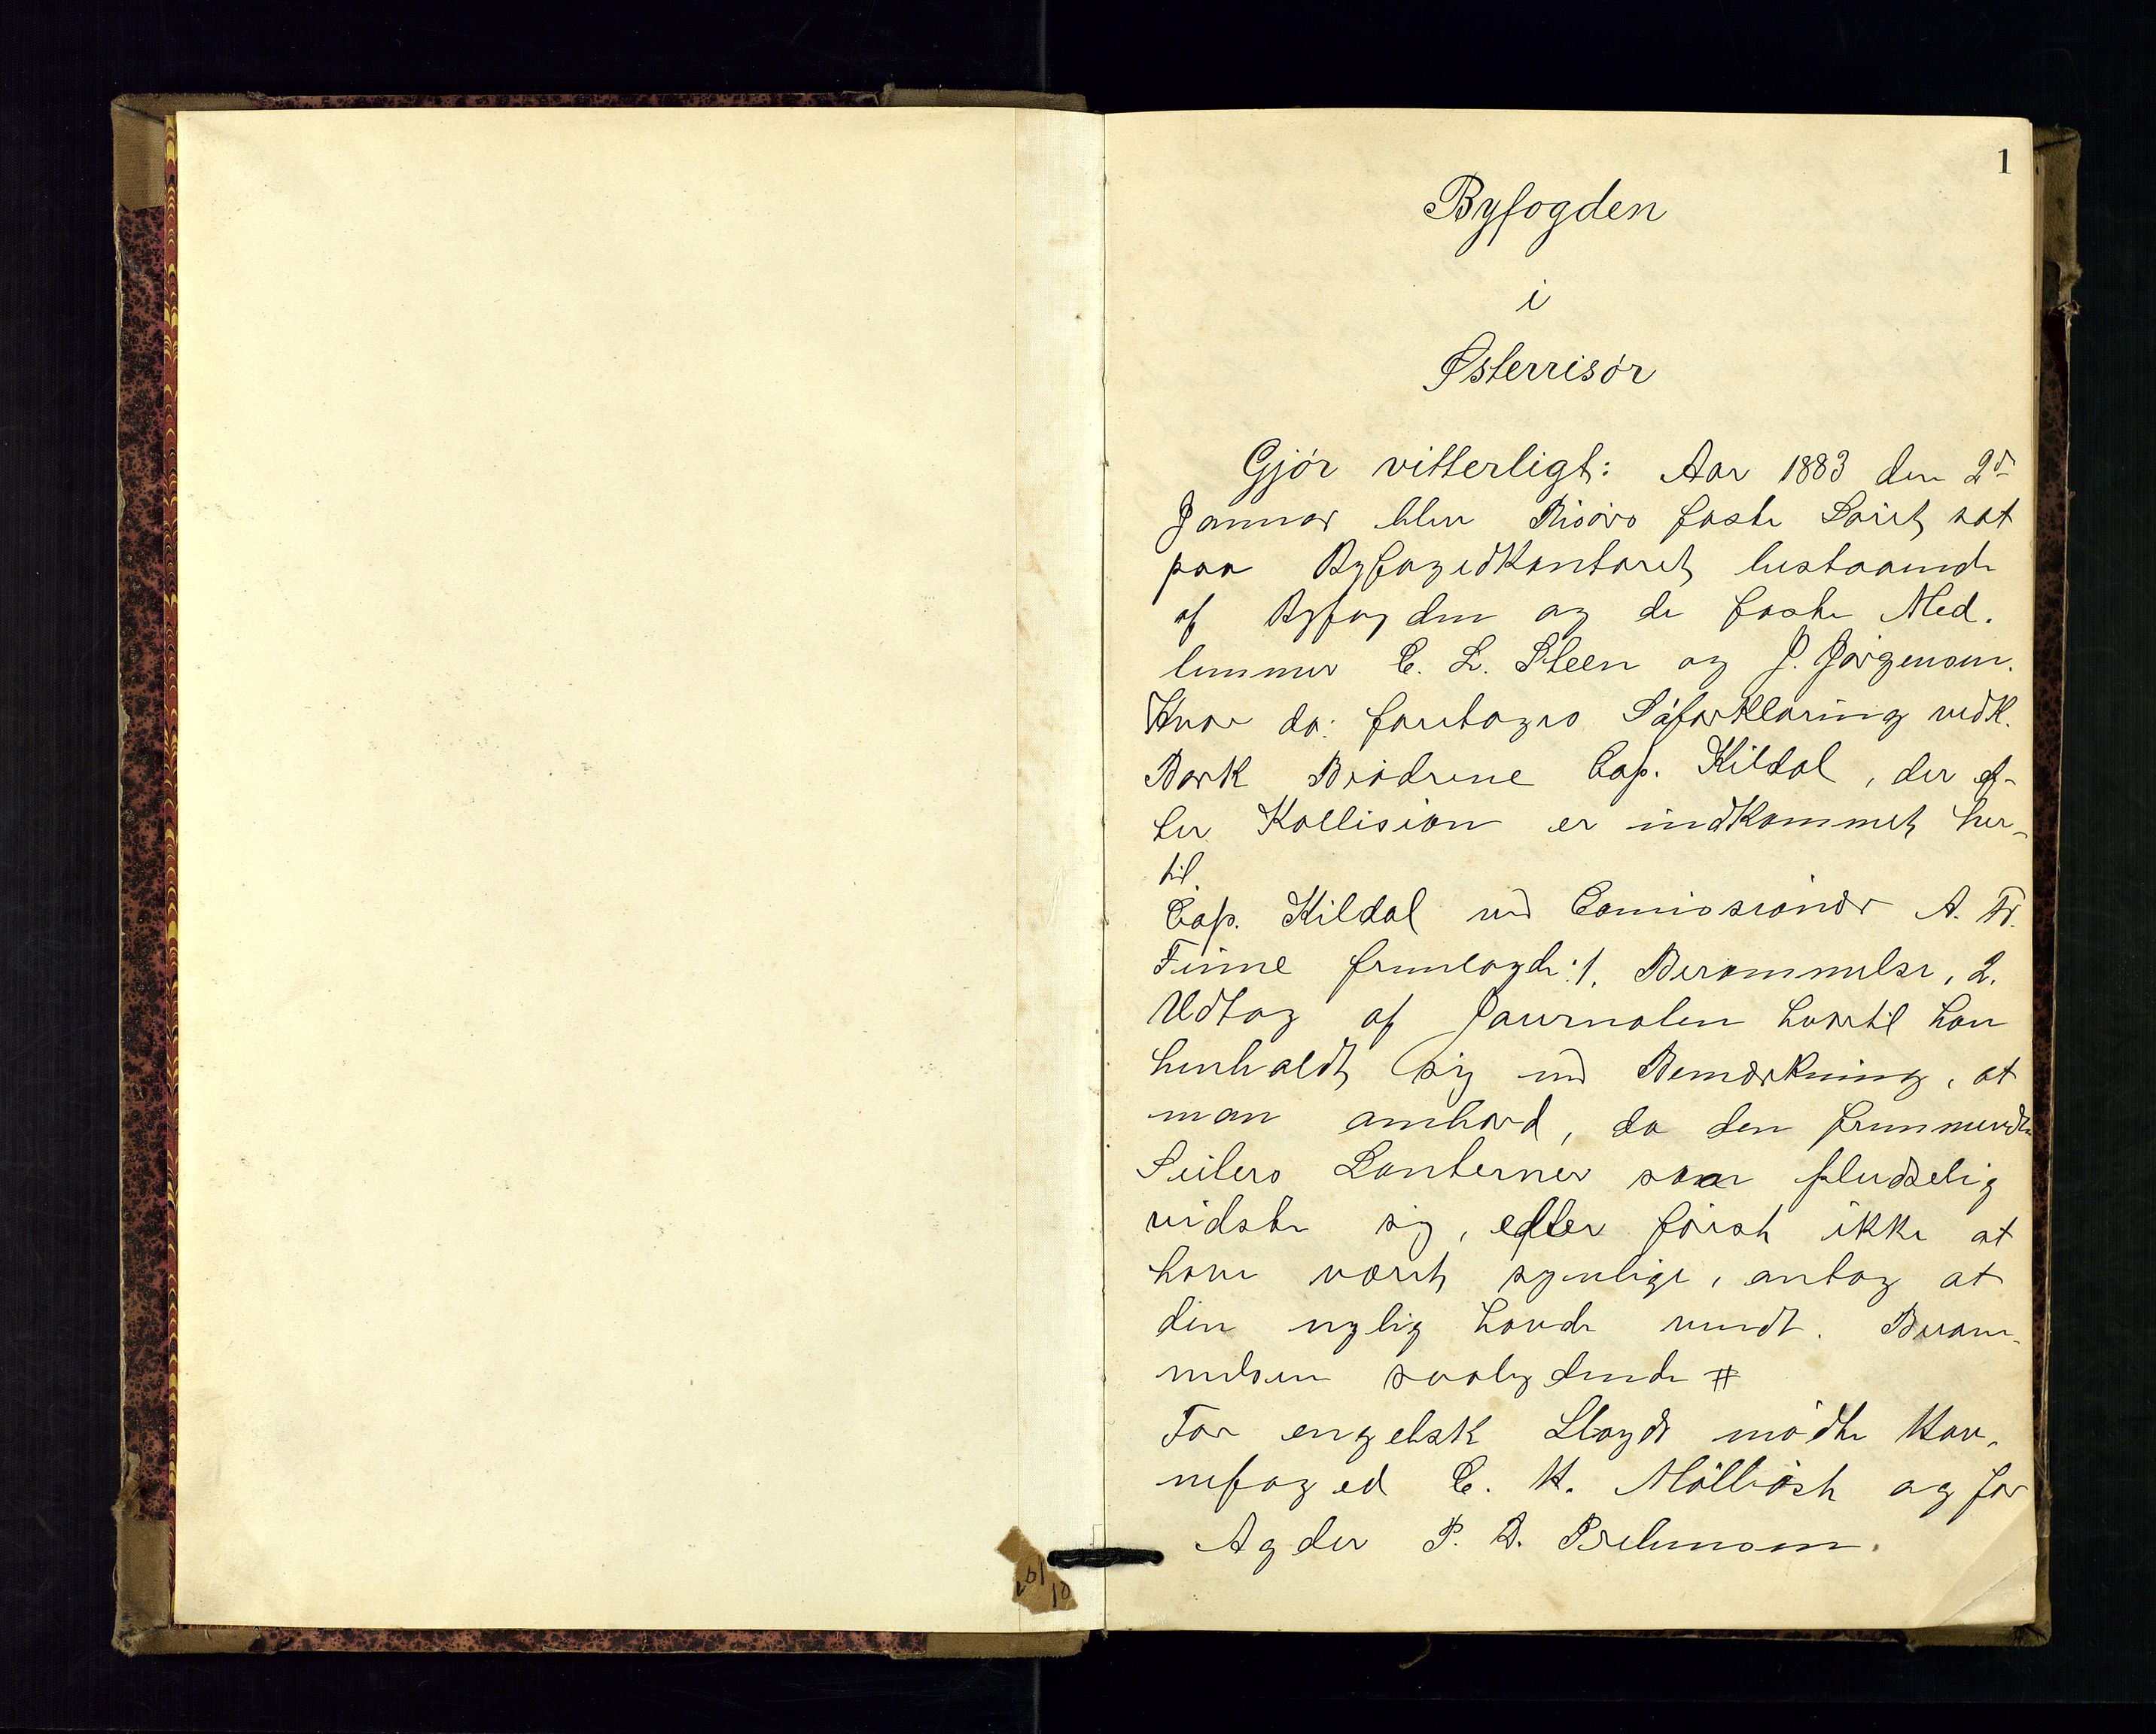 1
Byfogden
i
Østerrisör
Gjör vitterligt: Aar 1883 den 2d
Januar blev Risörs faste Söret sat
paa Byfogedkontoret bestaaende
af Byfogden og de faste Med.
lemmer C. L. Steen og J. Jörgensen.
Hvor da: foretoges Söforklaring vedk.
Bark Brödrene Cap. Kildal, der ef-
ter Kollision er indkommet her-
til.
Cap. Kildal ved Comissionær A. Fr.
Finne fremlagde: 1. Berammelse, 2.
Udtog af Journalen hvortil han
henholdt sig med Bemærkning, at
man ombord, da den fremmede
Seilers Lanterner saa pludselig
vidste sig, efter först ikke at
have været synlige, antog at
den nylig havde vendt. Beram-
melsen saalydende #
For engelsk Lloyds mödte Hav-
nefoged C. H. Möllböst og for
Agder P. D.